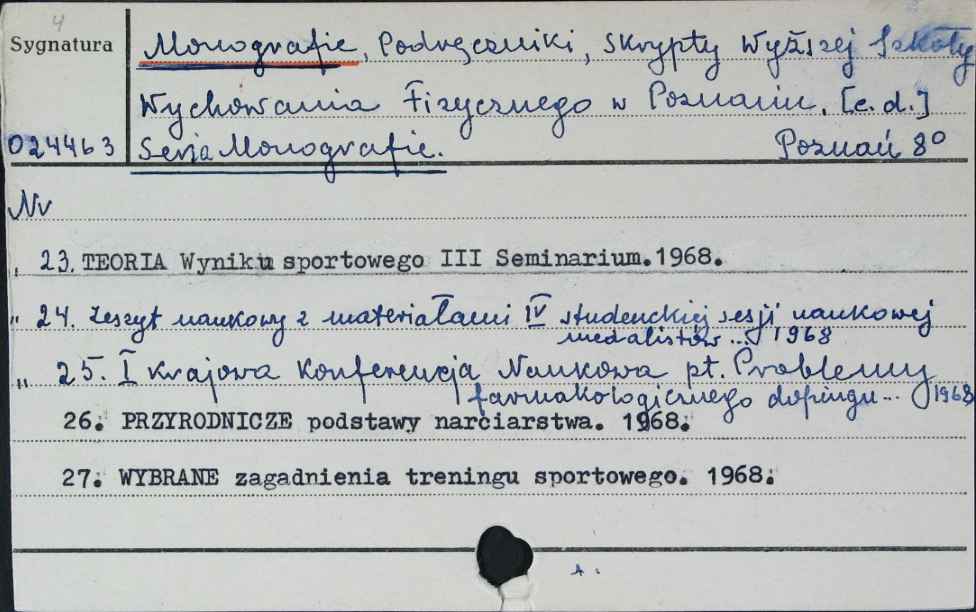 4
Sygnatura
Monografie, Podręczniki, Skrypty Wyższej Szkoły
Wychowania Fizycznego w Poznaniu. [c.d.]
024463 Seria Monografie. Poznań 8°
Nr
„ 23. TEORIA Wyniku sportowego III Seminarium.1968.
„ 24. Zeszyt naukowy z materiałami IV studenckiej sesji naukowej
medalistów ... 1968
„ 25. I Krajowa Konferencja Naukowa pt. Problemy
farmakologicznego dopingu... 1968
26. PRZYRODNICZE podstawy narciarstwa. 1968.
27. WYBRANE zagadnienia treningu sportowego. 1968.